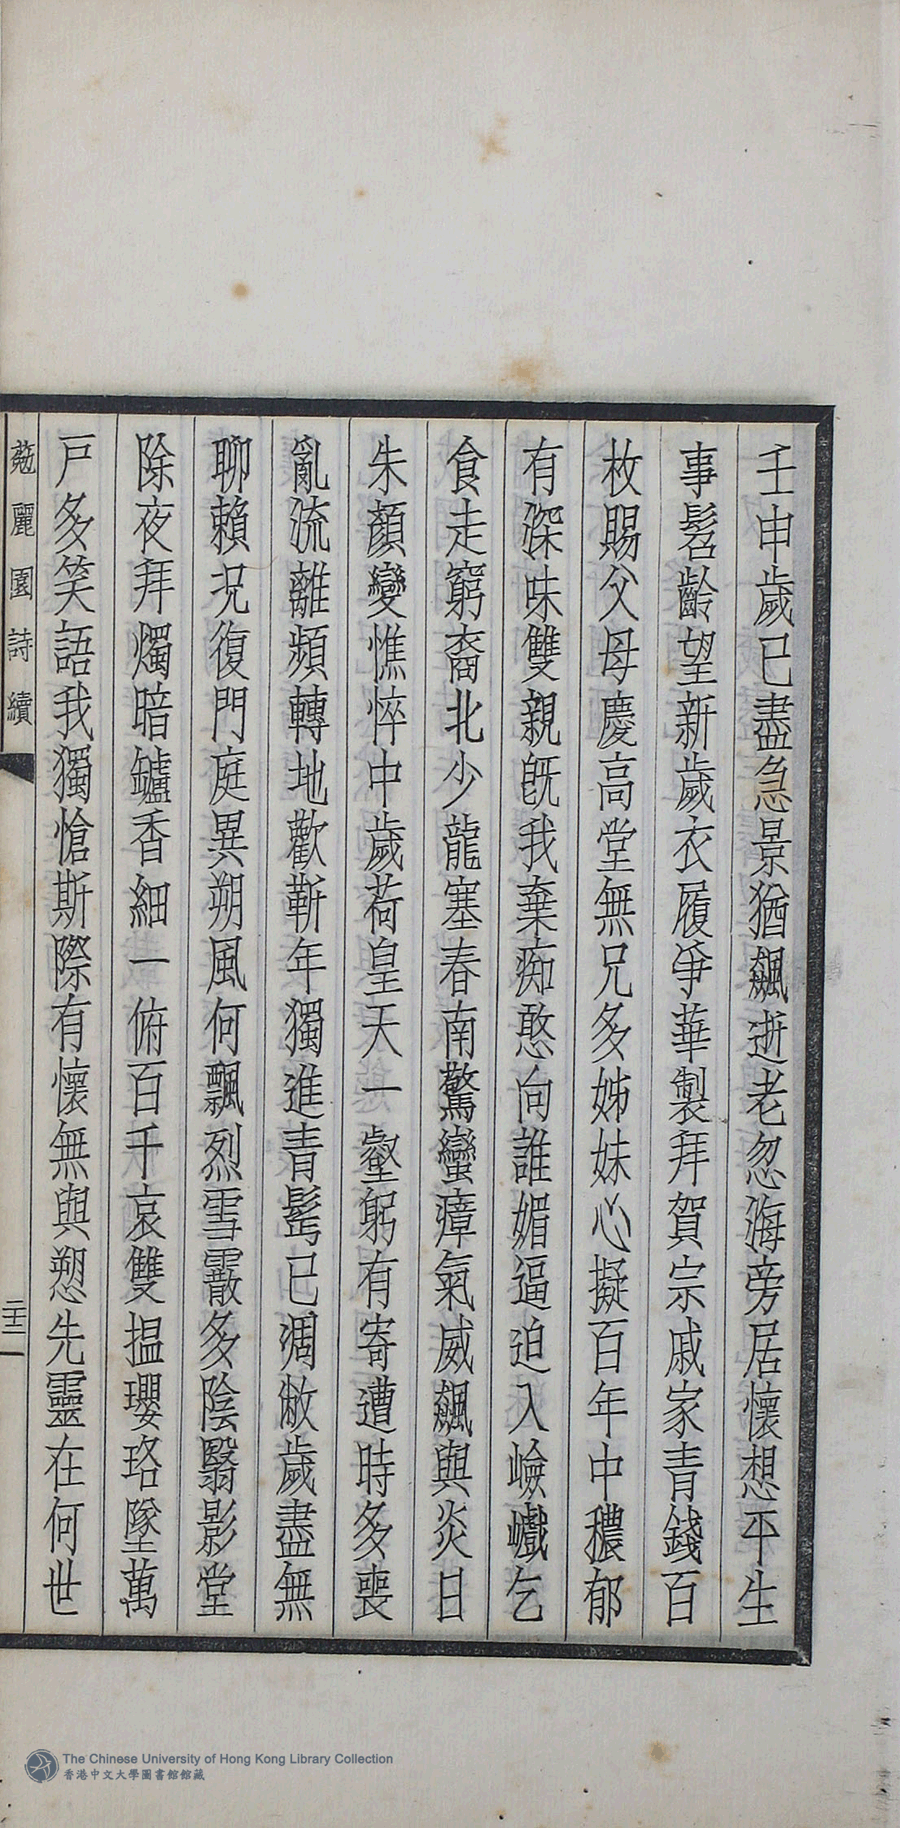 壬申歲已盡急景猶飆逝老忽海旁居懷想平生
事髫齡望新歲衣履爭華製拜賀宗戚家青錢百
枚賜父母慶高堂無兄多姊妹心擬百年中穠郁
有深味雙親旣我棄痴憨向誰媚逼迫入嶮巇乞
食走窮裔北少龍塞春南驚蠻瘴氣威飆與炎日
朱顏變憔悴中歲荷皇天一壑躬有寄遭時多喪
亂流離頻轉地歡蘄年獨進青髩已凋敝歲盡無
聊賴況復門庭異朔風何飄烈雪霰多陰翳影堂
除夜拜燭暗鑪香細一俯百千哀雙揾瓔珞墜萬
戶多笑語我獨愴斯際有懷無與愬先靈在何世
菀麗園詩續
二十二
The Chinese University of Hong Kong Library Collection
香港中文大學圖書館館藏